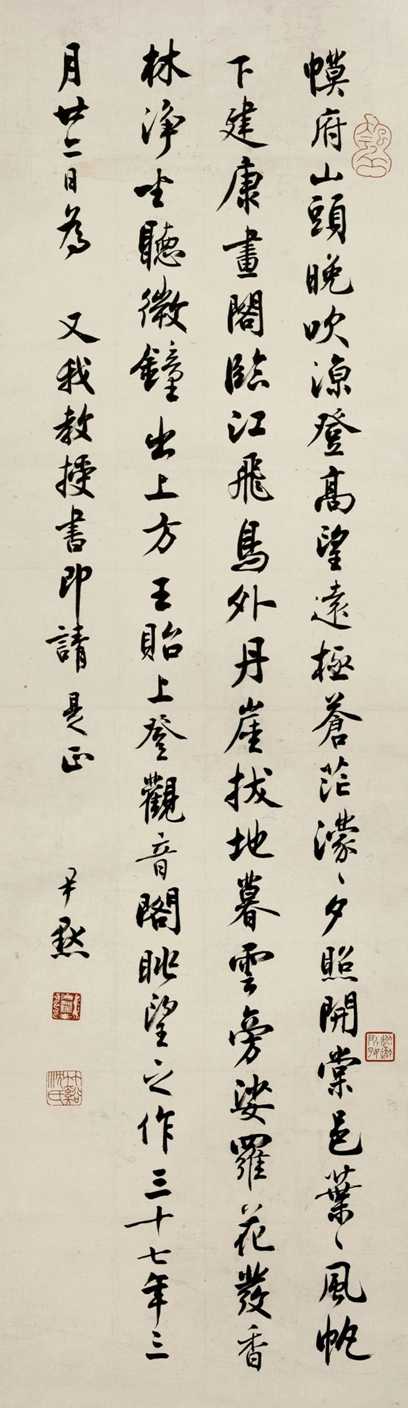 幙府山頭晚吹涼登高望遠極蒼茫濛〻夕照開棠邑葉〻風帆
下建康畫閣臨江飛鳥外丹崖拔地暮雲旁娑羅花發香
林淨坐聽微鐘出上方王貽上登觀音閣眺望之作三十七年三
月廿二日為 又我教授書即請是正 尹默
竹谿沈氏